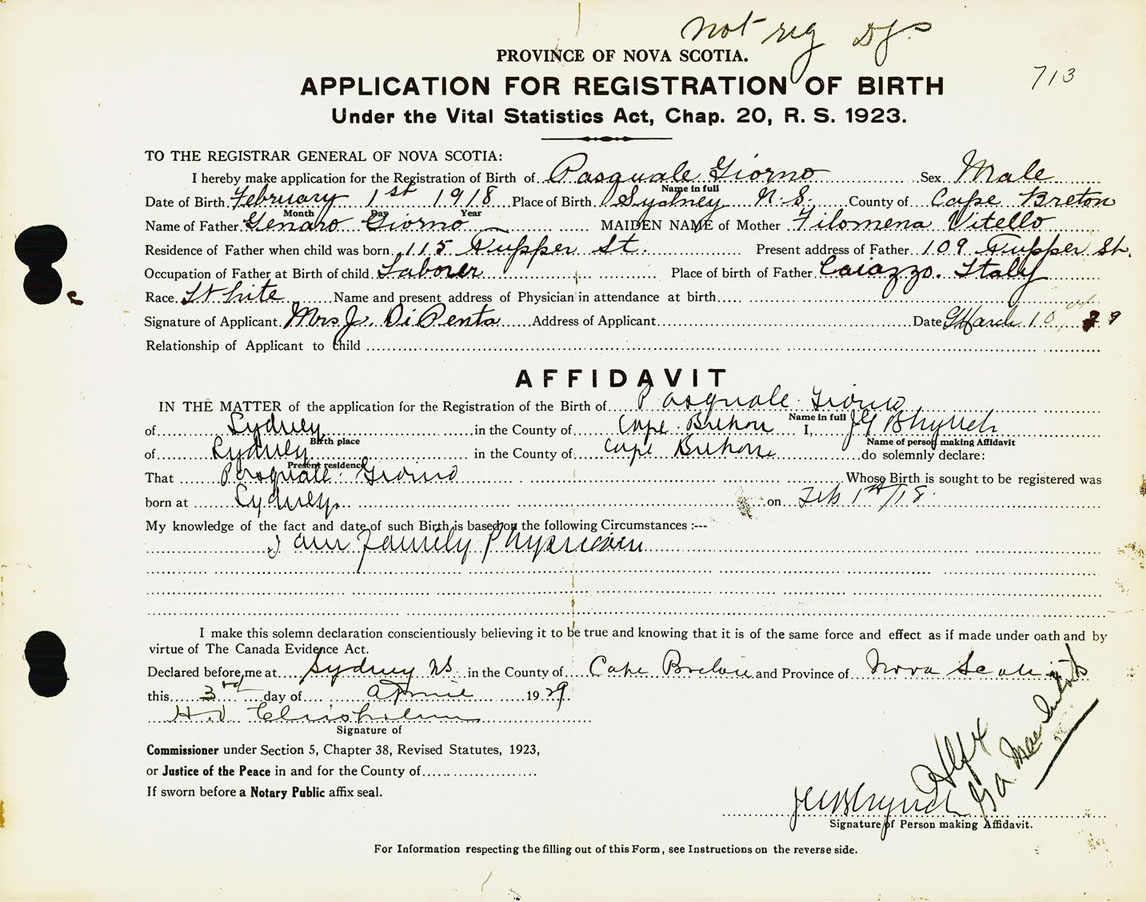 not reg
PROVINCE OF NOVA SCOTIA.
713
APPLICATION FOR REGISTRATION OF BIRTH
Under the Vital Statistics Act, Chap. 20, R. S. 1923.
TO THE REGISTRAR GENERAL OF NOVA SCOTIA:
I hereby make application for the Registration of Birth of Pasquale Giorno Sex Male
Name in full
Date of Birth February 1st 1918 Place of Birth Sydney N.S. County of Cape Breton
Month Day Year
Name of Father Genaro Giorno MAIDEN NAME of Mother Filomena Vitello
Residence of Father when child was born 115 Tupper St. Present address of Father 109 Tupper St.
Occupation of Father at Birth of child Laborer Place of birth of Father Caiazzo. Italy
Race White Name and present address of Physician in attendance at birth
Signature of Applicant Mrs J. DiPenta Address of Applicant Date March 10 29
Relationship of Applicant to child
AFFIDAVIT
IN THE MATTER of the application for the Registration of the Birth of Pasquale Giorno
Name in full
of Sydney in the County of Cape Breton I,
Birth place Name of person making Affidavit
of Sydney in the County of Cape Breton do solemnly declare:
Present residence
That Pasquale Giorno Whose Birth is sought to be registered was
born at Sydney on Feb 1st/18.
My knowledge of the fact and date of such Birth is based on the following Circumstances :---
I am family Physician
I make this solemn declaration conscientiously believing it to be true and knowing that it is of the same force and effect as if made under oath and by
virtue of The Canada Evidence Act.
Declared before me at Sydney NS. in the County of Cape Breton and Province of Nova Scotia
this 3rd day of April 1929
H.D. Chisholm
Signature of
Commissioner under Section 5, Chapter 38, Revised Statutes, 1923,
or Justice of the Peace in and for the County of
If sworn before a Notary Public affix seal.
Signature of Person making Affidavit.
For Information respecting the filling out of this Form, see Instructions on the reverse side.